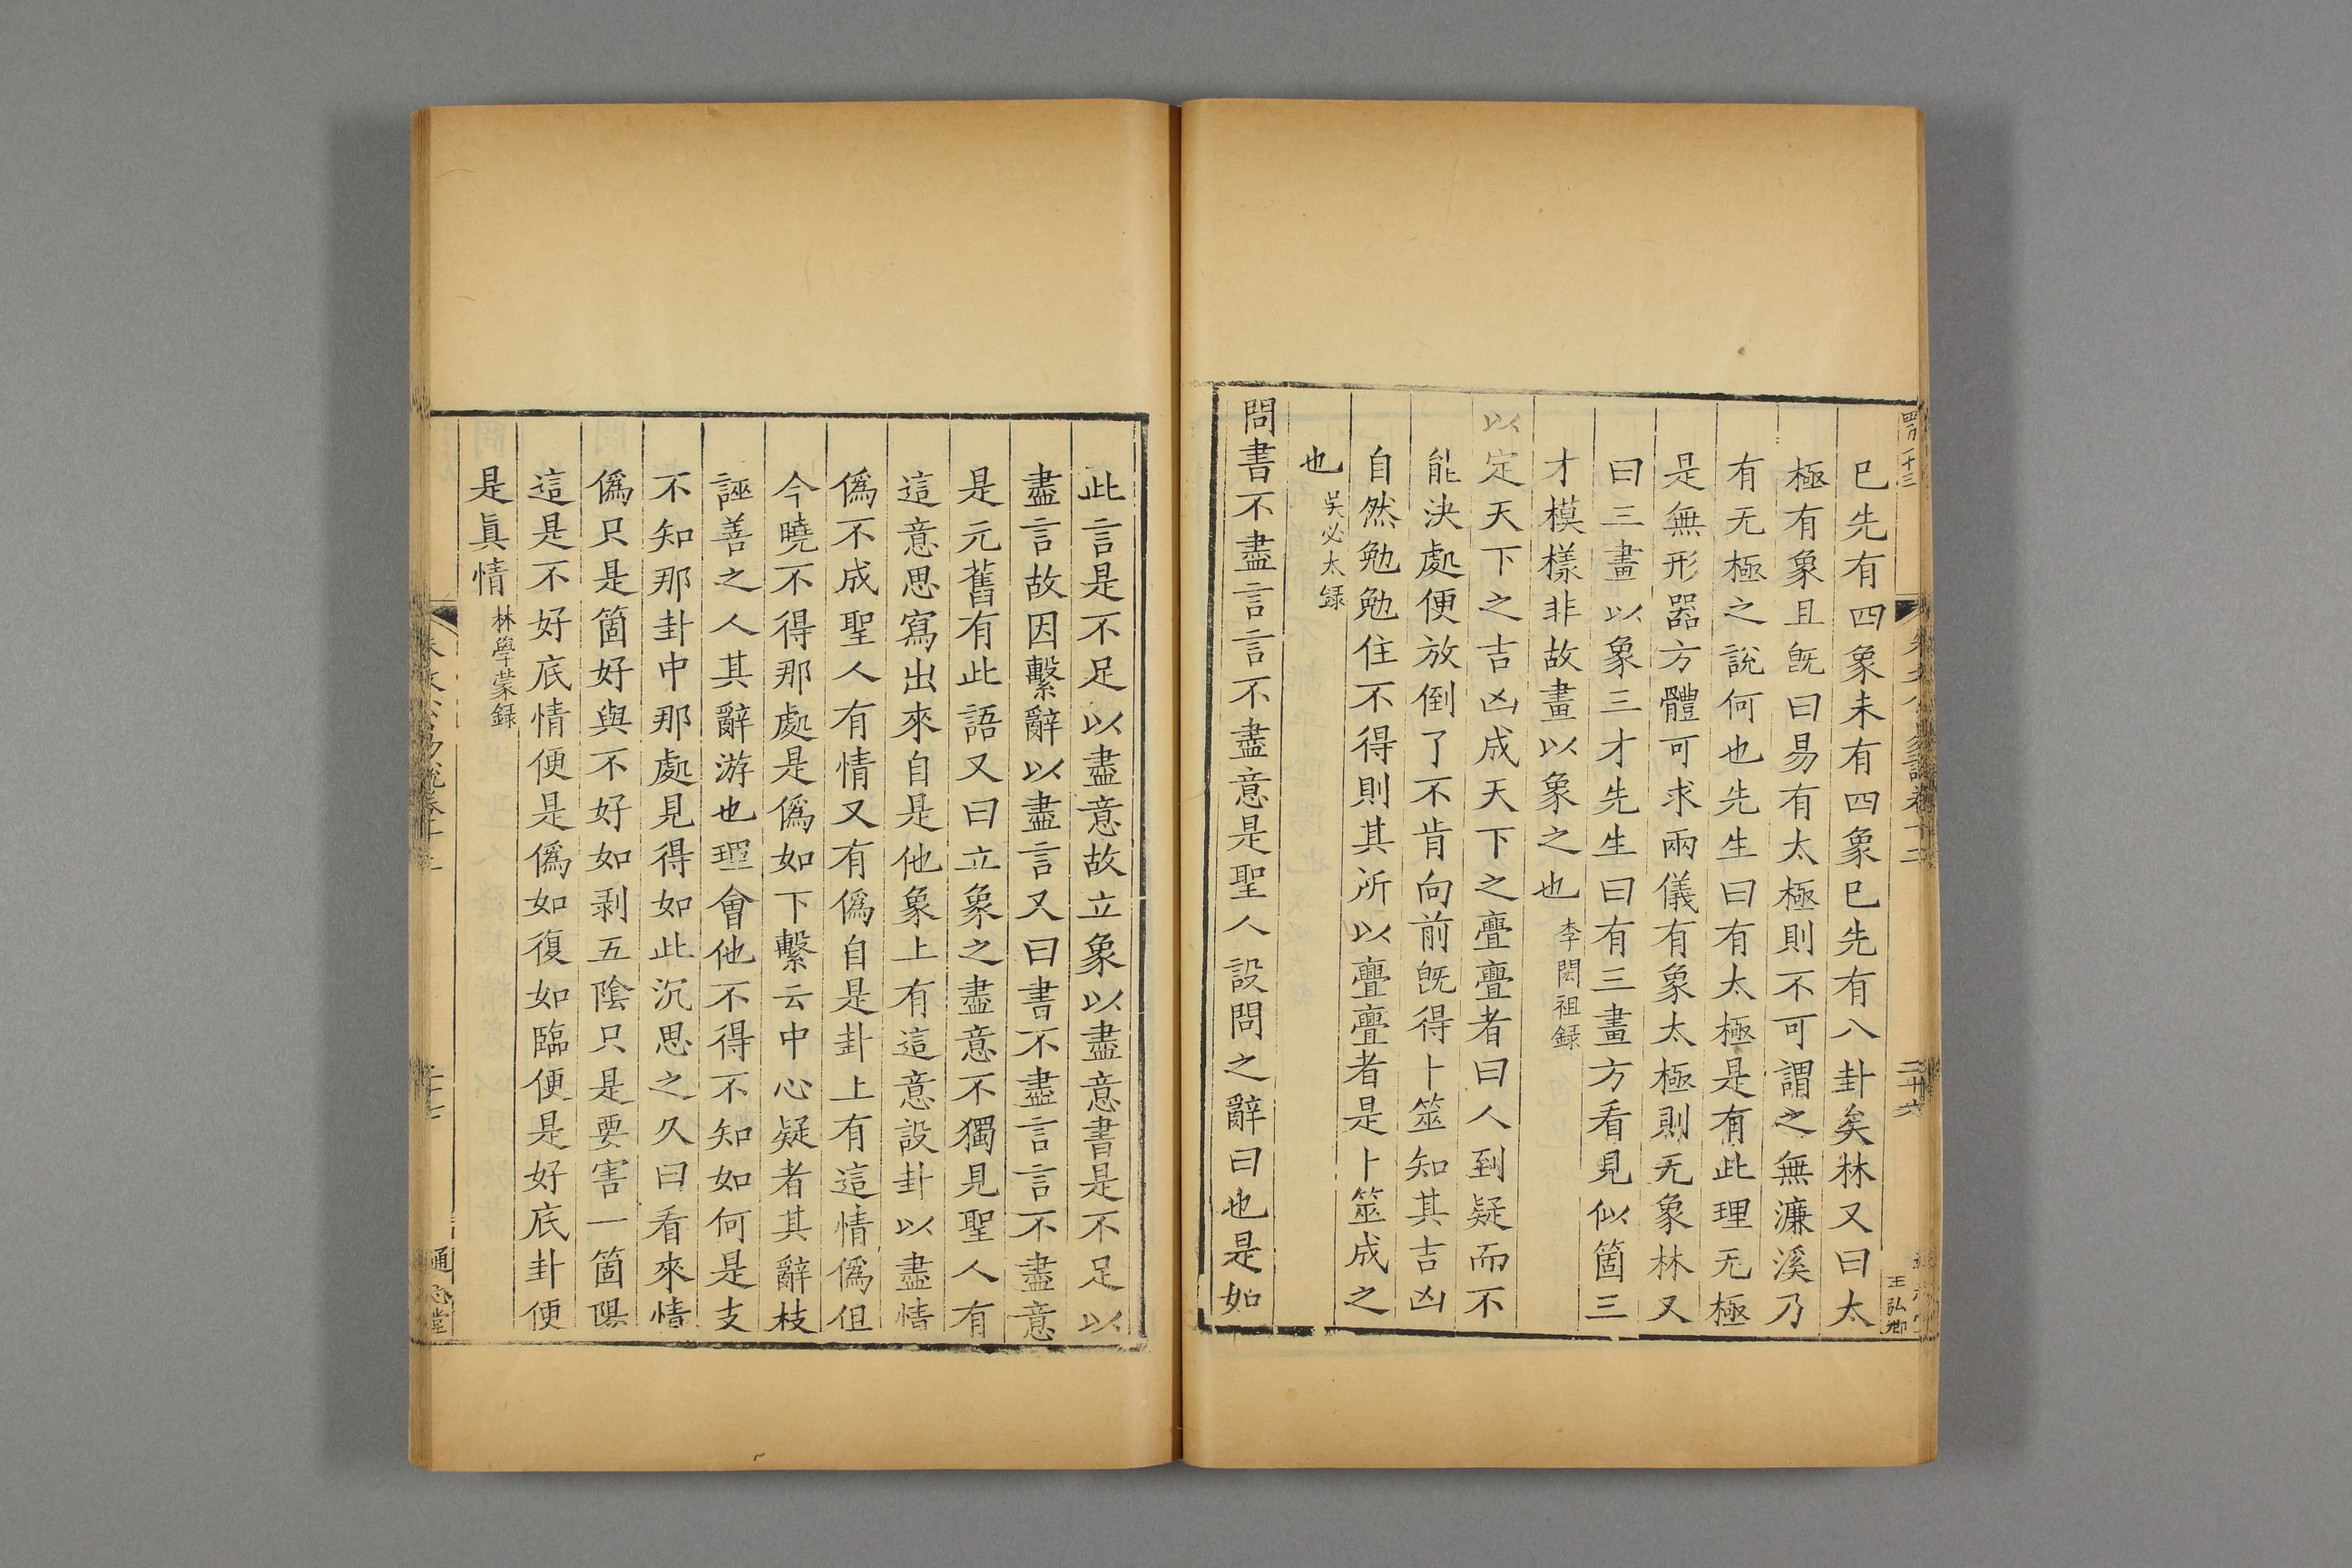 巳先有四象未有四象巳先有八卦矣林又曰太
極有象且既曰易有太極則不可謂之無濂溪乃
有无極之說何也先生曰有太極是有此理无極
是無形器方體可求兩儀有象太極則无象林又
曰三畫以象三才先生曰有三畫方看見似箇三
才模樣非故畫以象之也李閎祖録
以定天下之吉凶成天下之亹亹者曰人到疑而不
能決處便放倒了不肯向前既得卜筮知其吉凶
自然勉勉住不得則其所以亹亹者是卜筮成之
也吴必大録
問書不盡言言不盡意是聖人設問之辭曰也是如
王弘卿
此言是不足以盡意故立象以盡意書是不足以
盡言故因繫辭以盡言又曰書不盡言言不盡意
是元舊有此語又曰立象之盡意不獨見聖人有
這意思寫出來自是他象上有這意設卦以盡情
僞不成聖人有情又有僞自是卦上有這情僞但
今曉不得那處是僞如下繫云中心疑者其辭枝
誣善之人其辭游也理會他不得不知如何是支
不知那卦中那處見得如此沉思之久曰看來情
僞只是箇好與不好如剥五陰只是要害一箇陽
這是不好底情便是僞如復如臨便是好底卦便
是眞情林學蒙録
通志堂